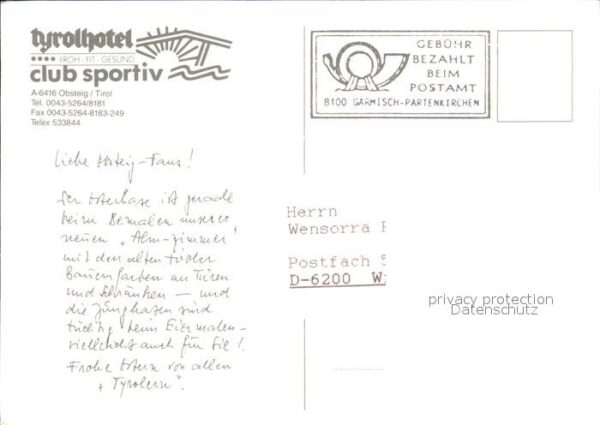 tyrolhotel
FROH · FIT · GESUND
club sportiv
A-6416 Obsteig / Tirol
Tel. 0043-5264/8181
Fax 0043-5264-8183-249
Telex 533844
GEBÜHR
BEZAHLT
BEIM
POSTAMT
8100 GARMISCH-PARTENKIRCHEN
Liebe Obsteig-Fans!
Der Osterhase ist gerade
beim Bemalen unserer
neuen „Alm-Zimmer"
mit den alten Tiroler
Bauernfarben an Türen
und Schränken – und
die Junghasen sind
tüchtig beim Eiermalen –
vielleicht auch für Sie!
Frohe Ostern von allen
„Tyrolern".
Herrn
Wensorra
Postfach
D-6200
privacy protection
Datenschutz